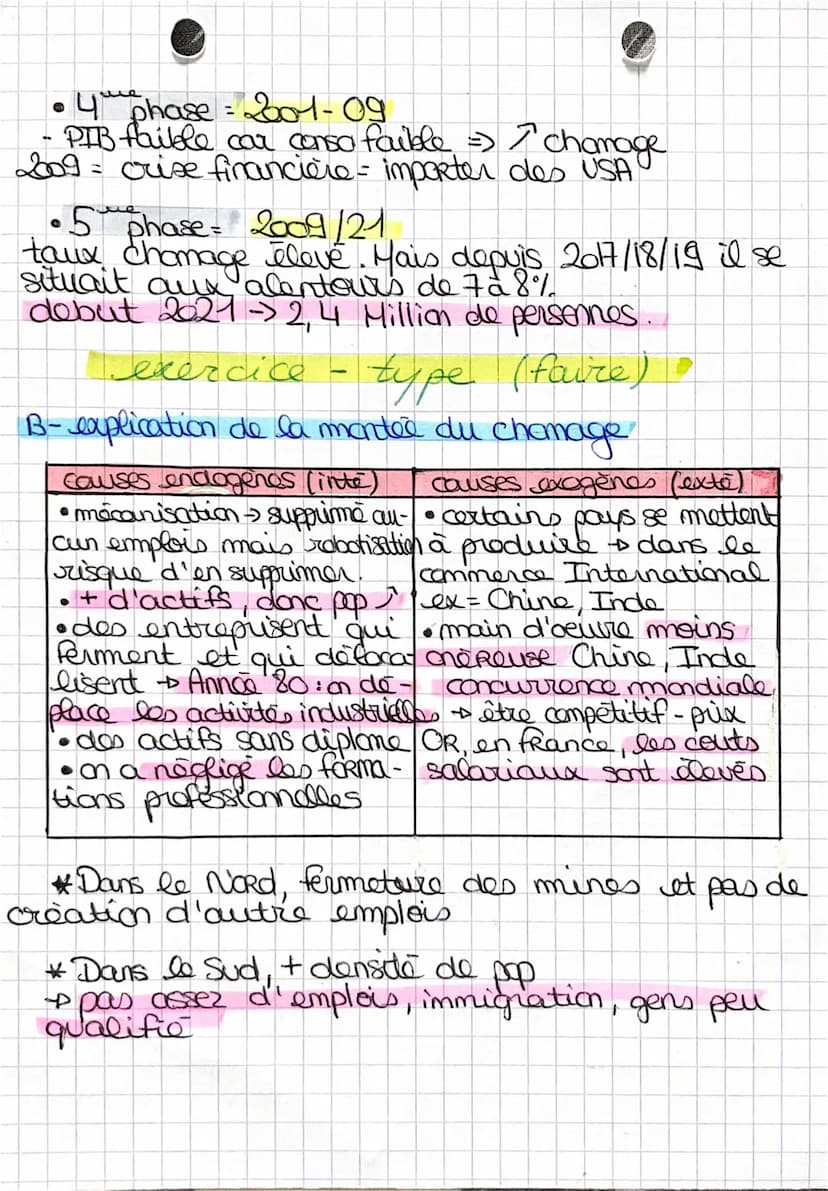 • 4ème phase = 2001-09
- PIB faible car conso faible => ↗ chomage
2009 = crise financière = importer des USA
• 5ème phase = 2009/21
taux chomage élevé. Mais depuis 2017/18/19 il se
situait aux alentours de 7 à 8%.
debut 2021 -> 2,4 Million de personnes.
exercice - type (faire)
B- explication de la montée du chomage
causes endogènes (inté)
• mécanisation -> supprimé au-
cun emplois mais robotisation
risque d'en supprimer.
• + d'actifs, donc pop ↗
• des entreprisent qui
ferment et qui déloca-
lisent -> Année 80 : on dé-
place les activités industrielles
• des actifs sans diplome
• on a négligé les forma-
tions professionnelles
causes exogènes (exté)
• certains pays se mettent
à produire -> dans le
commerce International
ex = Chine, Inde
• main d'oeuvre moins
onéreuse Chine, Inde
concurrence mondiale
-> être compétitif - prix
OR, en france, les couts
salariaux sont élevés
* Dans le Nord, fermeture des mines et pas de
création d'autre emplois
* Dans le Sud, + densité de pop
-> pas assez d'emplois, immigration, gens peu
qualifié